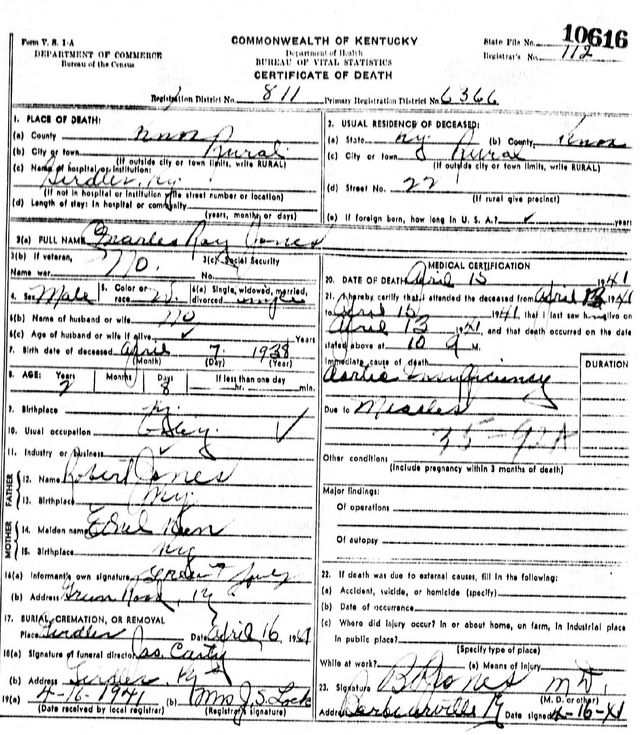 Form V. S. 1-A
DEPARTMENT OF COMMERCE
Bureau of the Census
COMMONWEALTH OF KENTUCKY
Department of Health
BUREAU OF VITAL STATISTICS
CERTIFICATE OF DEATH
State File No. 10616
Registrar's No. 112
Registration District No. 811 Primary Registration District No. 6366
1. PLACE OF DEATH:
(a) County Knox
(b) City or town Rural
(If outside city or town limits, write RURAL)
(c) Name of hospital or institution:
Girdler, Ky.
(If not in hospital or institution give street number or location)
(d) Length of stay: In hospital or community
(years, months or days)
2. USUAL RESIDENCE OF DECEASED:
(a) State Ky. (b) County Knox
(c) City or town Rural
(If outside city or town limits, write RURAL)
(d) Street No. 22
(If rural give precinct)
(e) If foreign born, how long in U. S. A.? ✓ years
3(a) FULL NAME Charles Ray Jones
3(b) If veteran, 3(c) Social Security
Name war No. No.
4. Sex Male 5. Color or race W. 6(a) Single, widowed, married, divorced single
6(b) Name of husband or wife no
6(c) Age of husband or wife if alive ✓ Years
7. Birth date of deceased April 7, 1938
(Month) (Day) (Year)
8. AGE: Years Months Days If less than one day
2 8 hr. min.
9. Birthplace Ky.
10. Usual occupation ✓
11. Industry or business ✓
FATHER
12. Name Robert Jones
13. Birthplace Ky.
MOTHER
14. Maiden name Ethel
15. Birthplace Ky
16(a) Informant's own signature
(b) Address Green Road, Ky
17. BURIAL, CREMATION, OR REMOVAL
Place Girdler Date April 16, 1941
18(a) Signature of funeral director Jas. Carty
(b) Address Girdler Ky
19(a) 4-16-1941 (b) Mrs J. S. Lock
(Date received by local registrar) (Registrar's signature)
MEDICAL CERTIFICATION
20. DATE OF DEATH April 15 1941
21. I hereby certify that I attended the deceased from April 13 1941
to April 15 1941, that I last saw h alive on
April 13 1941, and that death occurred on the date
stated above at 10 a M.
DURATION
Immediate cause of death
Aortic Insufficiency
Due to Measles
35-92A
Other conditions
(Include pregnancy within 3 months of death)
Major findings:
Of operations
Of autopsy
22. If death was due to external causes, fill in the following:
(a) Accident, suicide, or homicide (specify)
(b) Date of occurrence
(c) Where did injury occur? In or about home, on farm, in industrial place
in public place?
(Specify type of place)
While at work? (e) Means of injury
23. Signature B Jones M D.
(M. D. or other)
Address Barbourville Ky Date signed 4-16-41